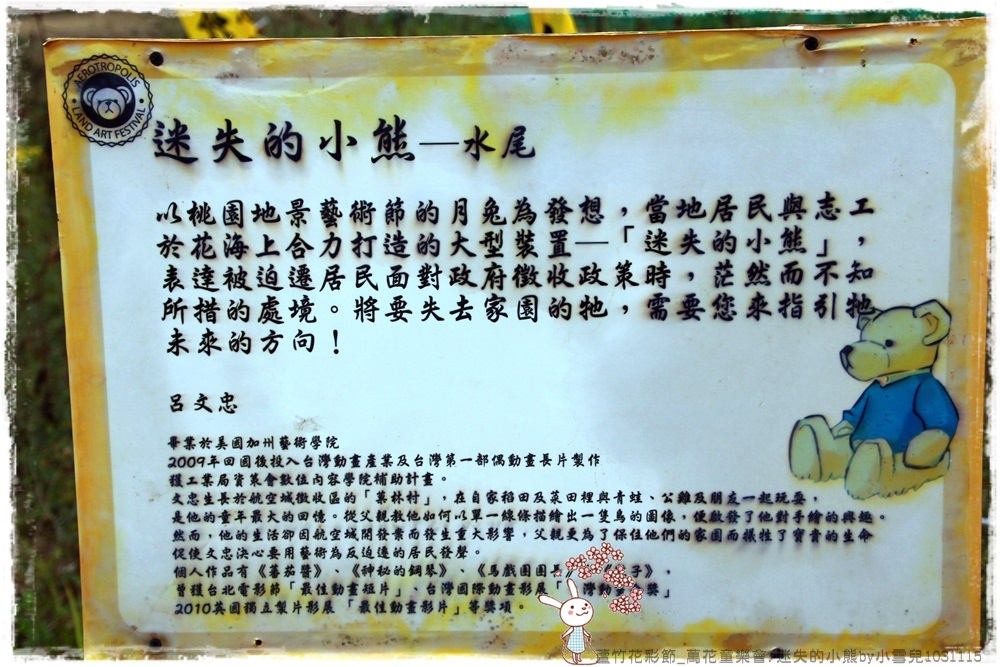 AEROTROPOLIS
LAND ART FESTIVAL
迷失的小熊—水尾
以桃園地景藝術節的月兔為發想，當地居民與志工
於花海上合力打造的大型裝置—「迷失的小熊」，
表達被迫遷居民面對政府徵收政策時，茫然而不知
所措的處境。將要失去家園的牠，需要您來指引牠
未來的方向！
呂文忠
畢業於美國加州藝術學院
2009年回國後投入台灣動畫產業及台灣第一部偶動畫長片製作
獲工業局資策會數位內容學院補助計畫。
文忠生長於航空城徵收區的「菓林村」，在自家稻田及菜田裡與青蛙、公雞及朋友一起玩耍，
是他的童年最大的回憶。從父親教他如何以單一線條描繪出一隻鳥的圖像，便啟發了他對手繪的興趣。
然而，他的生活卻因航空城開發案而發生重大影響，父親更為了保住他們的家園而犧牲了寶貴的生命
促使文忠決心要用藝術為反迫遷的居民發聲。
個人作品有《蕃茄醬》、《神秘的鋼琴》、《馬戲團團長》 子》，
曾獲台北電影節「最佳動畫短片」、台灣國際動畫影展「 灣動畫 獎」
2010英國獨立製片影展 「最佳動畫影片」等獎項。
蘆竹花彩節_萬花童樂會-迷失的小熊by小雪兒1031115